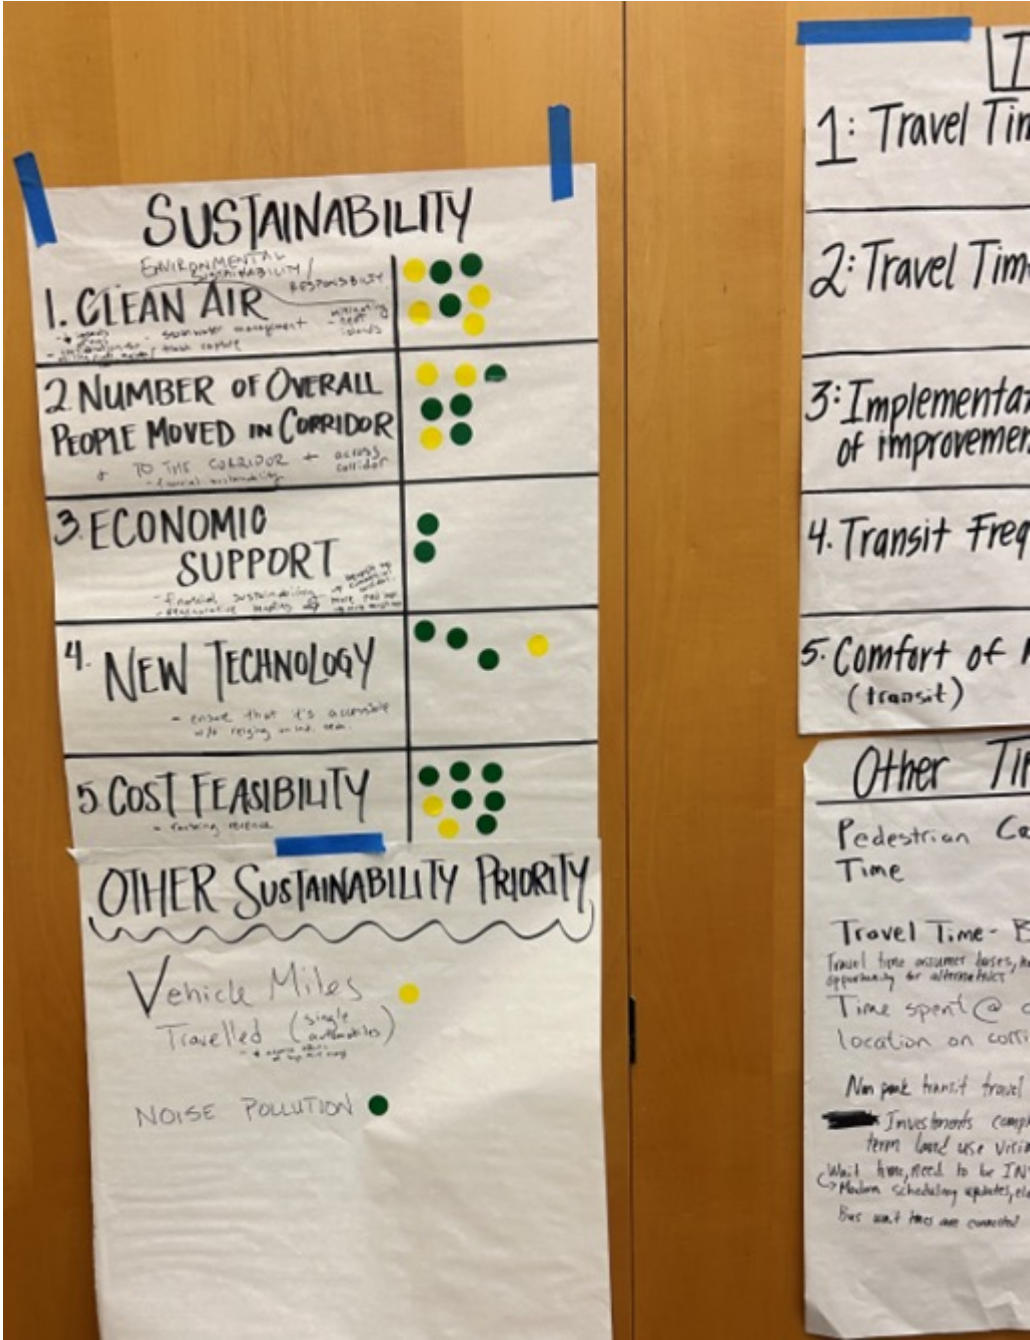 SUSTAINABILITY
ENVIRONMENTAL
SUSTAINABILITY/
RESPONSIBILITY
1. CLEAN AIR
stormwater management
trash capture
mitigating
heat
islands
2. NUMBER OF OVERALL
PEOPLE MOVED IN CORRIDOR
+ TO THE CORRIDOR + across
corridor
- financial sustainability
3. ECONOMIC
SUPPORT
- financial sustainability
4. NEW TECHNOLOGY
- ensure that it's accessible
w/o relying on ind. tech.
5. COST FEASIBILITY
OTHER SUSTAINABILITY PRIORITY
Vehicle Miles
Travelled (single
automobiles)
NOISE POLLUTION
1: Travel Tim
2: Travel Tim
3: Implementat
of improvemen
4. Transit Freq
5. Comfort of
(transit)
Other TI
Pedestrian
Time
Travel Time- B
Travel time assumes buses,
opportunity for alternatives
Time spent @
location on corri
Non peak transit travel
Investments comp
term land use visi
Wait time, need to be IN
Modern scheduling updates, el
Bus wait times are connected